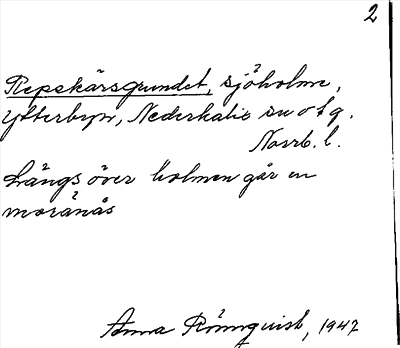 2
Repskärsgrundet, sjöholme,
Ytterbyn, Nederkalix sn o tg.
Norrb. l.
Längs över holmen går en
moränås
Anna Rönnquist, 1947